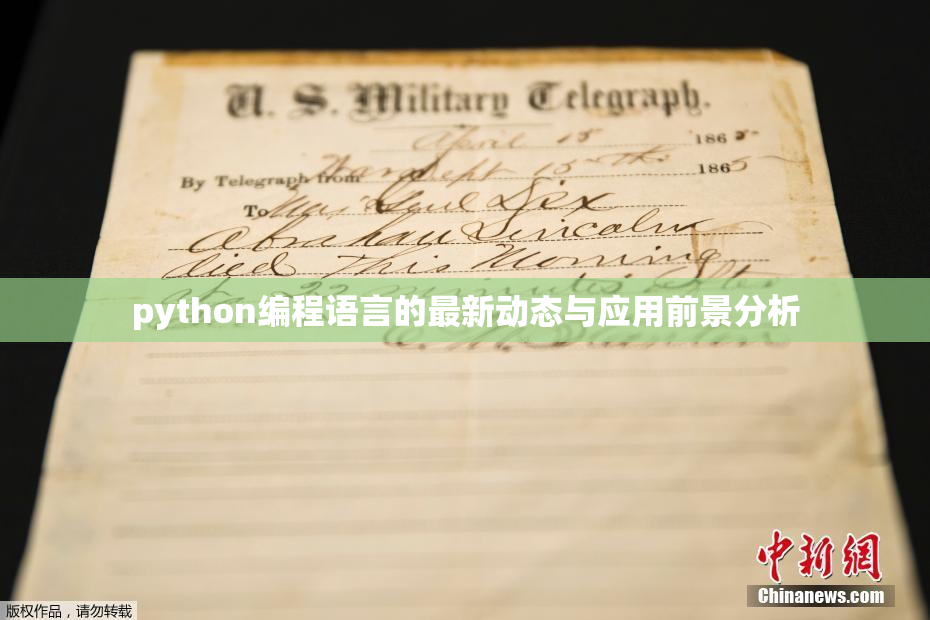 U. S. Military Telegraph.
April 15 1865
By Telegraph from War Dept 15th 1865
To Maj Genl Dix
Abraham Lincoln
died This Morning
22 minutes after
python编程语言的最新动态与应用前景分析
E. M. Stanton
中新网
Chinanews.com
版权作品,请勿转载